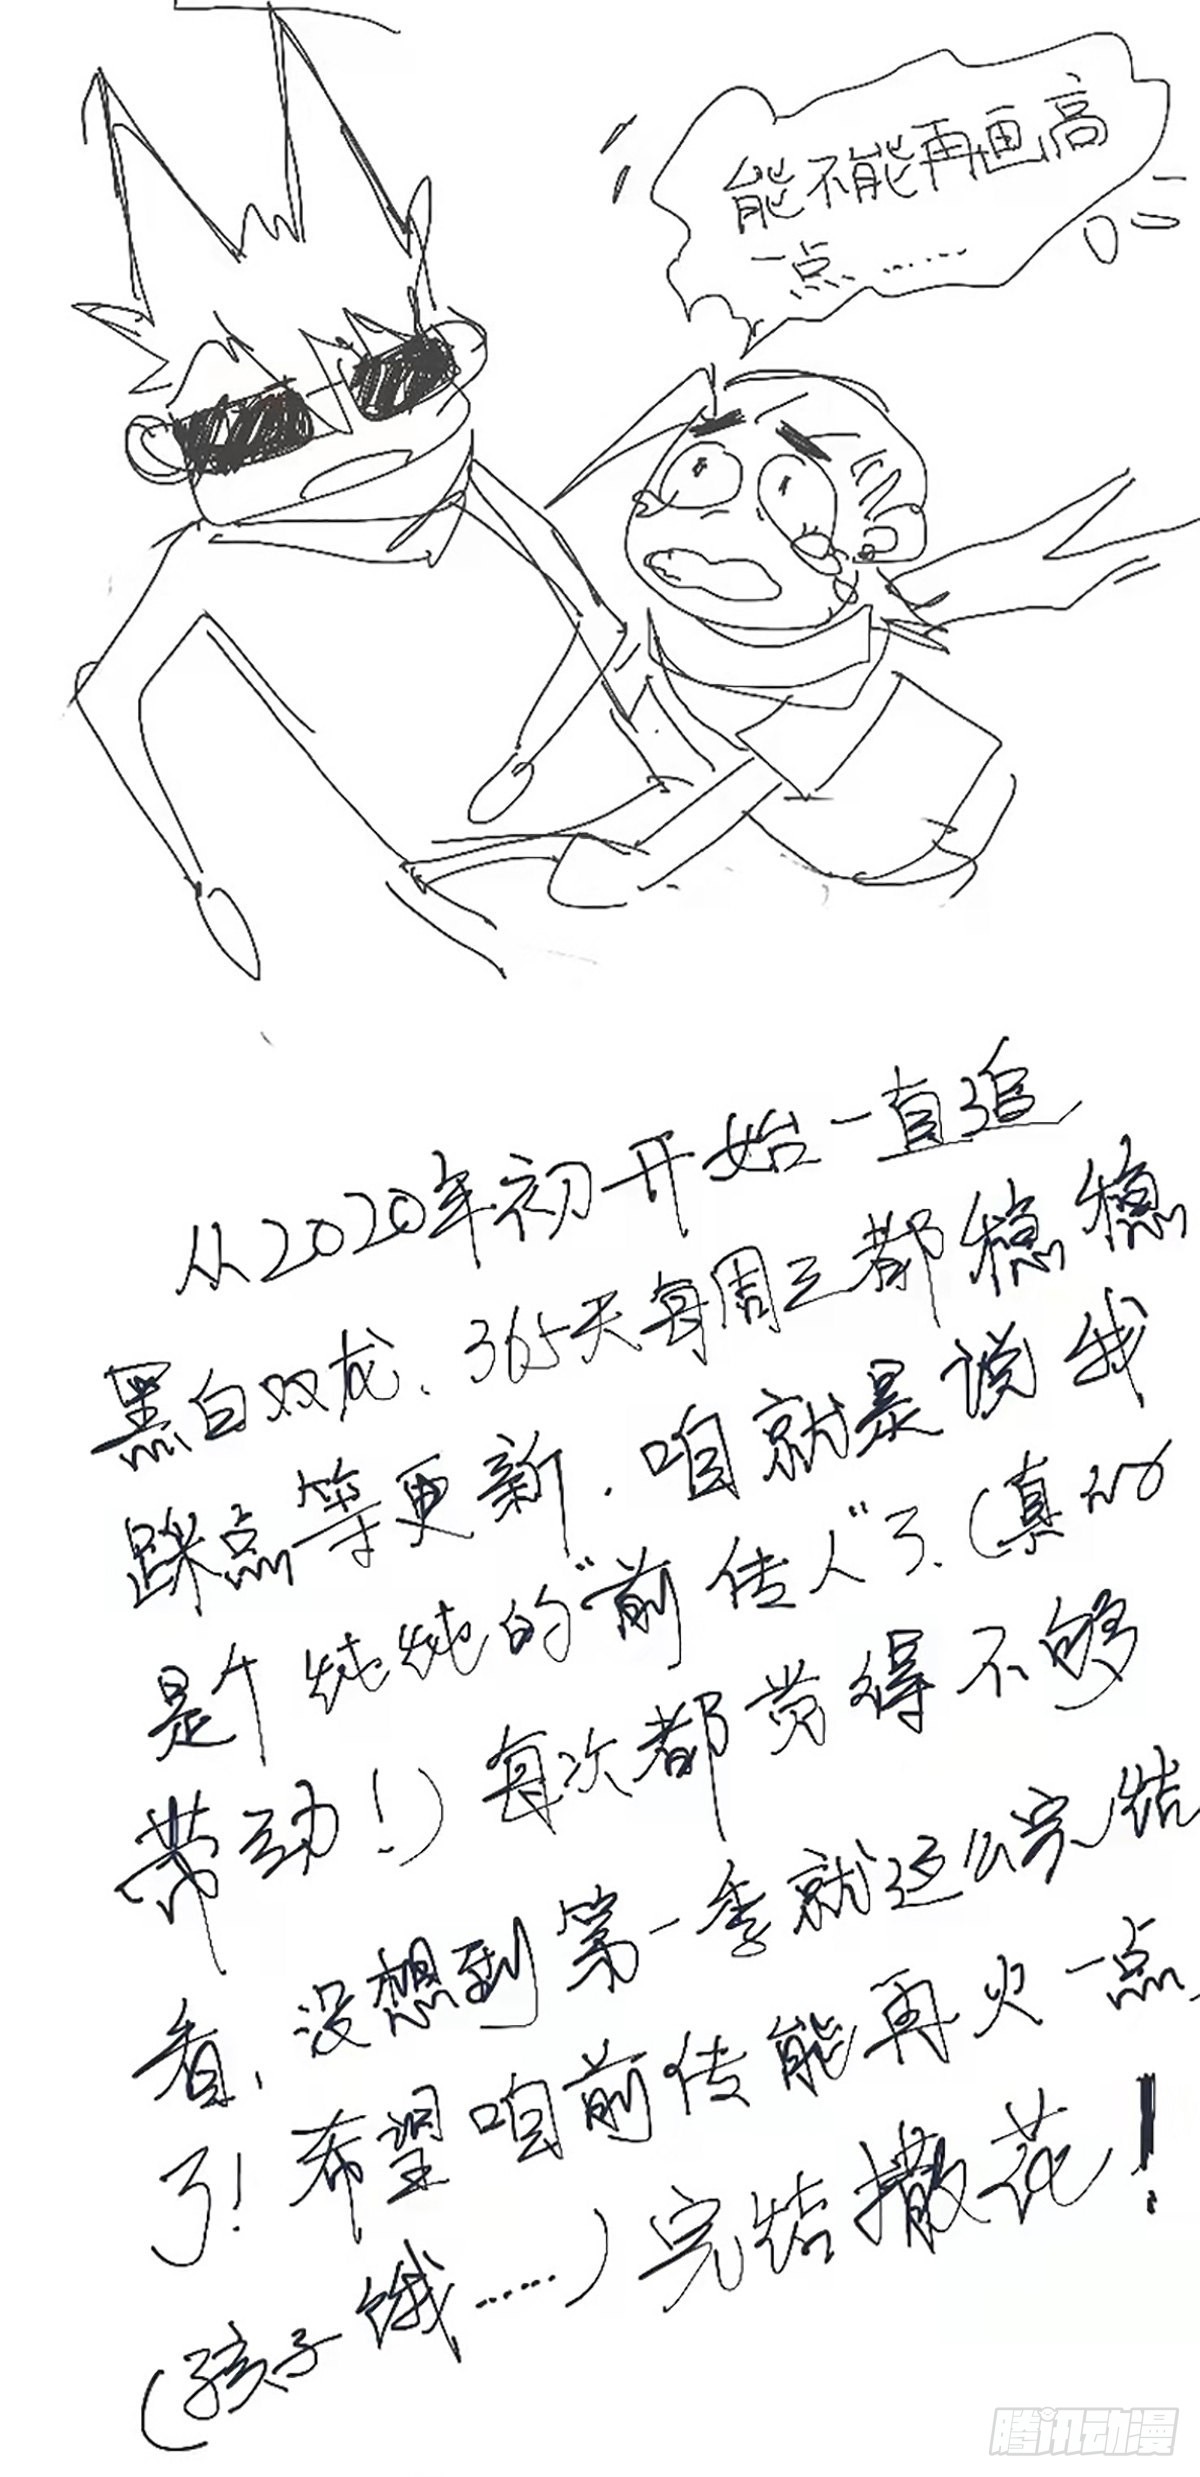 能不能再画高
一点……
从2020年初开始一直追
黑白双龙、365天每周三都稳稳
踩点等更新.咱就是说我
是个纯纯的“前传人”了.(真的
带劲！)每次都觉得不够
看、没想到第一季就这么完结
了！希望咱前传能再火一点
(孩子饿……)完结撒花！
腾讯动漫